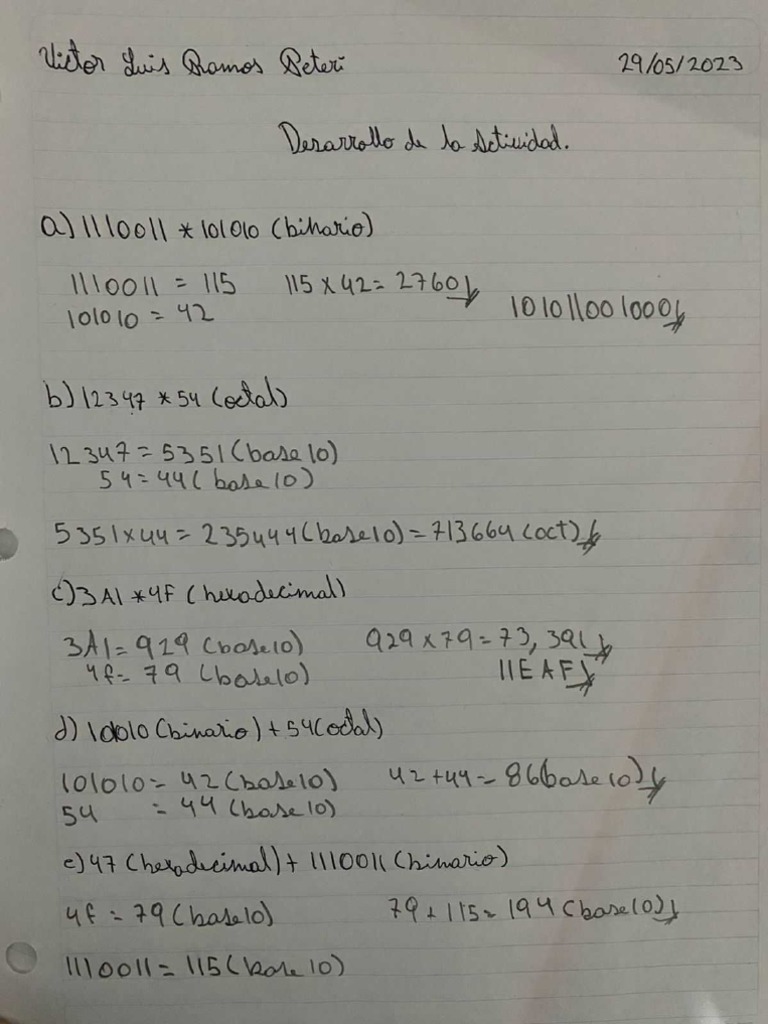 Victor Luis Ramos Peteri 29/05/2023
Desarrollo de la Actividad.
a) 1110011 * 101010 (binario)
1110011 = 115 115 x 42 = 2760
101010 = 42 101011001000
b) 12347 * 54 (octal)
12347 = 5351 (base 10)
54 = 44 (base 10)
5351 x 44 = 235444 (base 10) = 713664 (oct)
c) 3A1 * 4F (hexadecimal)
3A1 = 929 (base 10) 929 x 79 = 73,391
4f = 79 (base 10) 11EAF
d) 10010 (binario) + 54 (octal)
101010 = 42 (base 10) 42 + 44 = 86 (base 10)
54 = 44 (base 10)
e) 47 (hexadecimal) + 1110011 (binario)
4f = 79 (base 10) 79 + 115 = 194 (base 10)
1110011 = 115 (base 10)